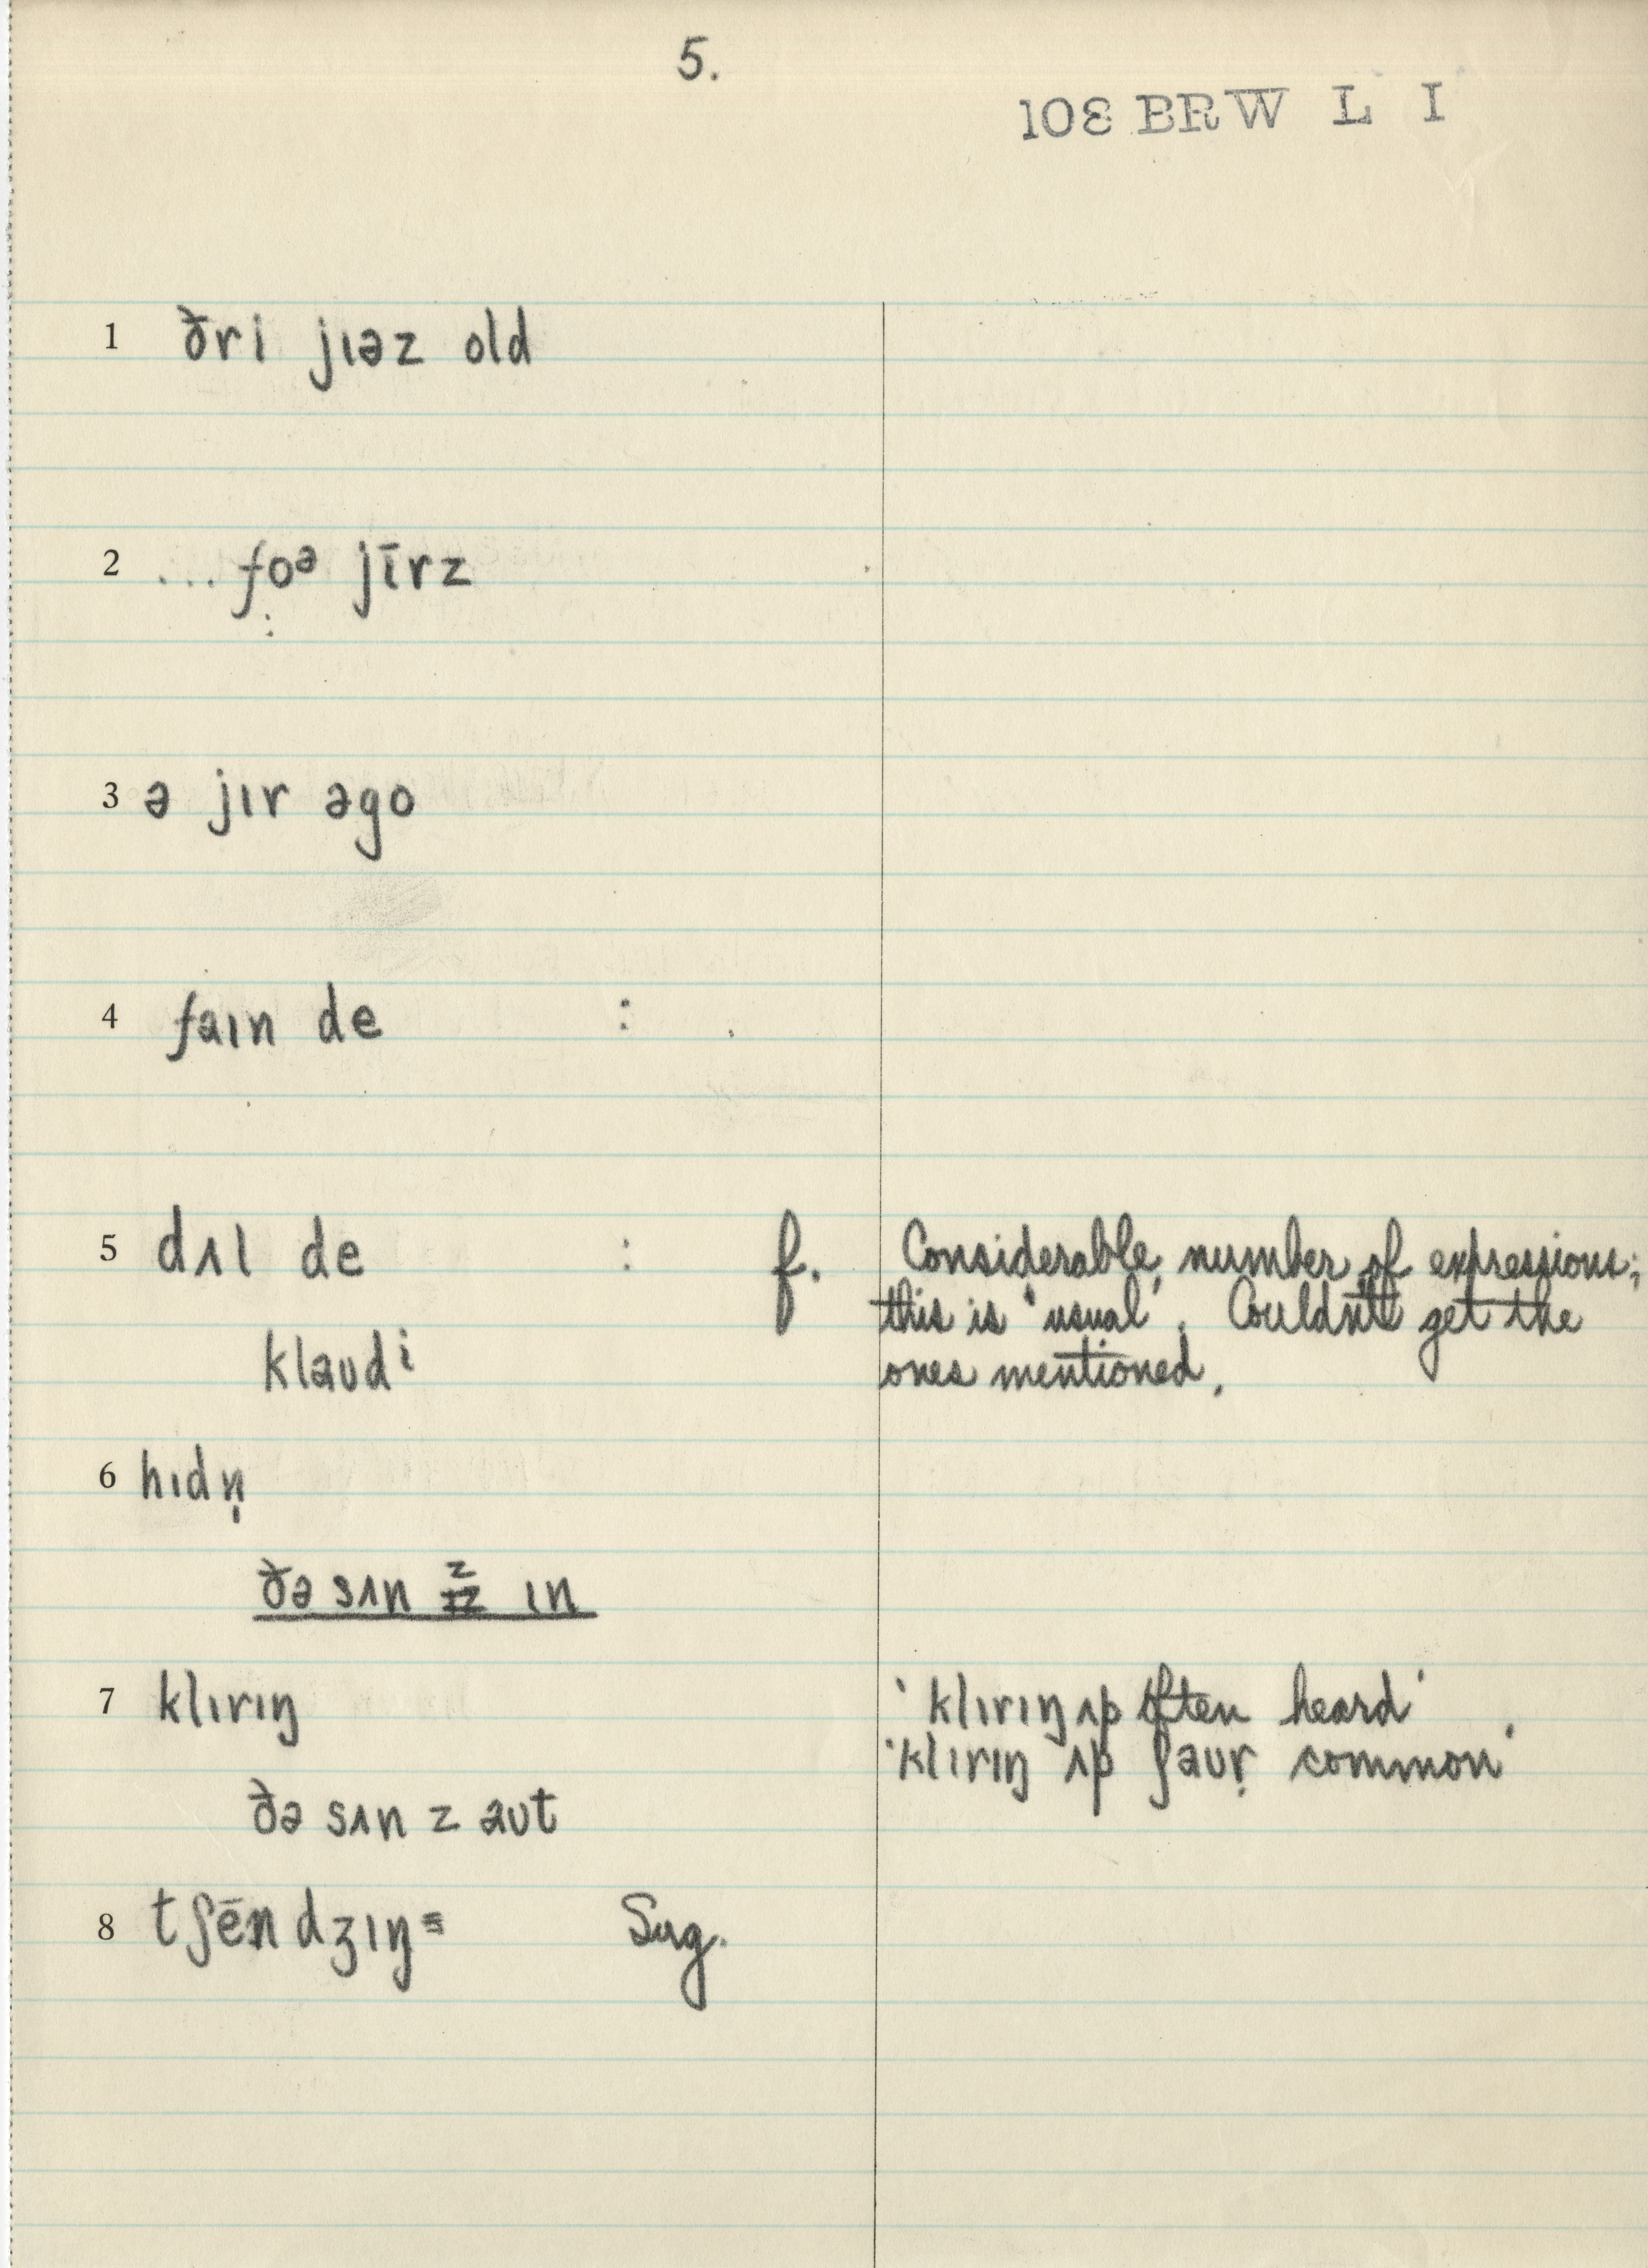 5.
108 BRW L I
1 ðri jɪəz old
2 ... foᵊ jīrz
:
3 ə jɪr əgo
4 faɪn de :
5 dʌl de : f. Considerable number of expressions;
this is 'usual'. Couldn't get the
klaʊdⁱ ones mentioned.
6 hɪdn̩
ðə sʌn z ɪn
7 klɪrɪŋ 'klɪrɪŋ ʌp often heard'
'klɪrɪŋ ʌp ʃaʊr̩ common'
ðə sʌn z aʊt
8 tʃēndʒɪŋ= Sug.